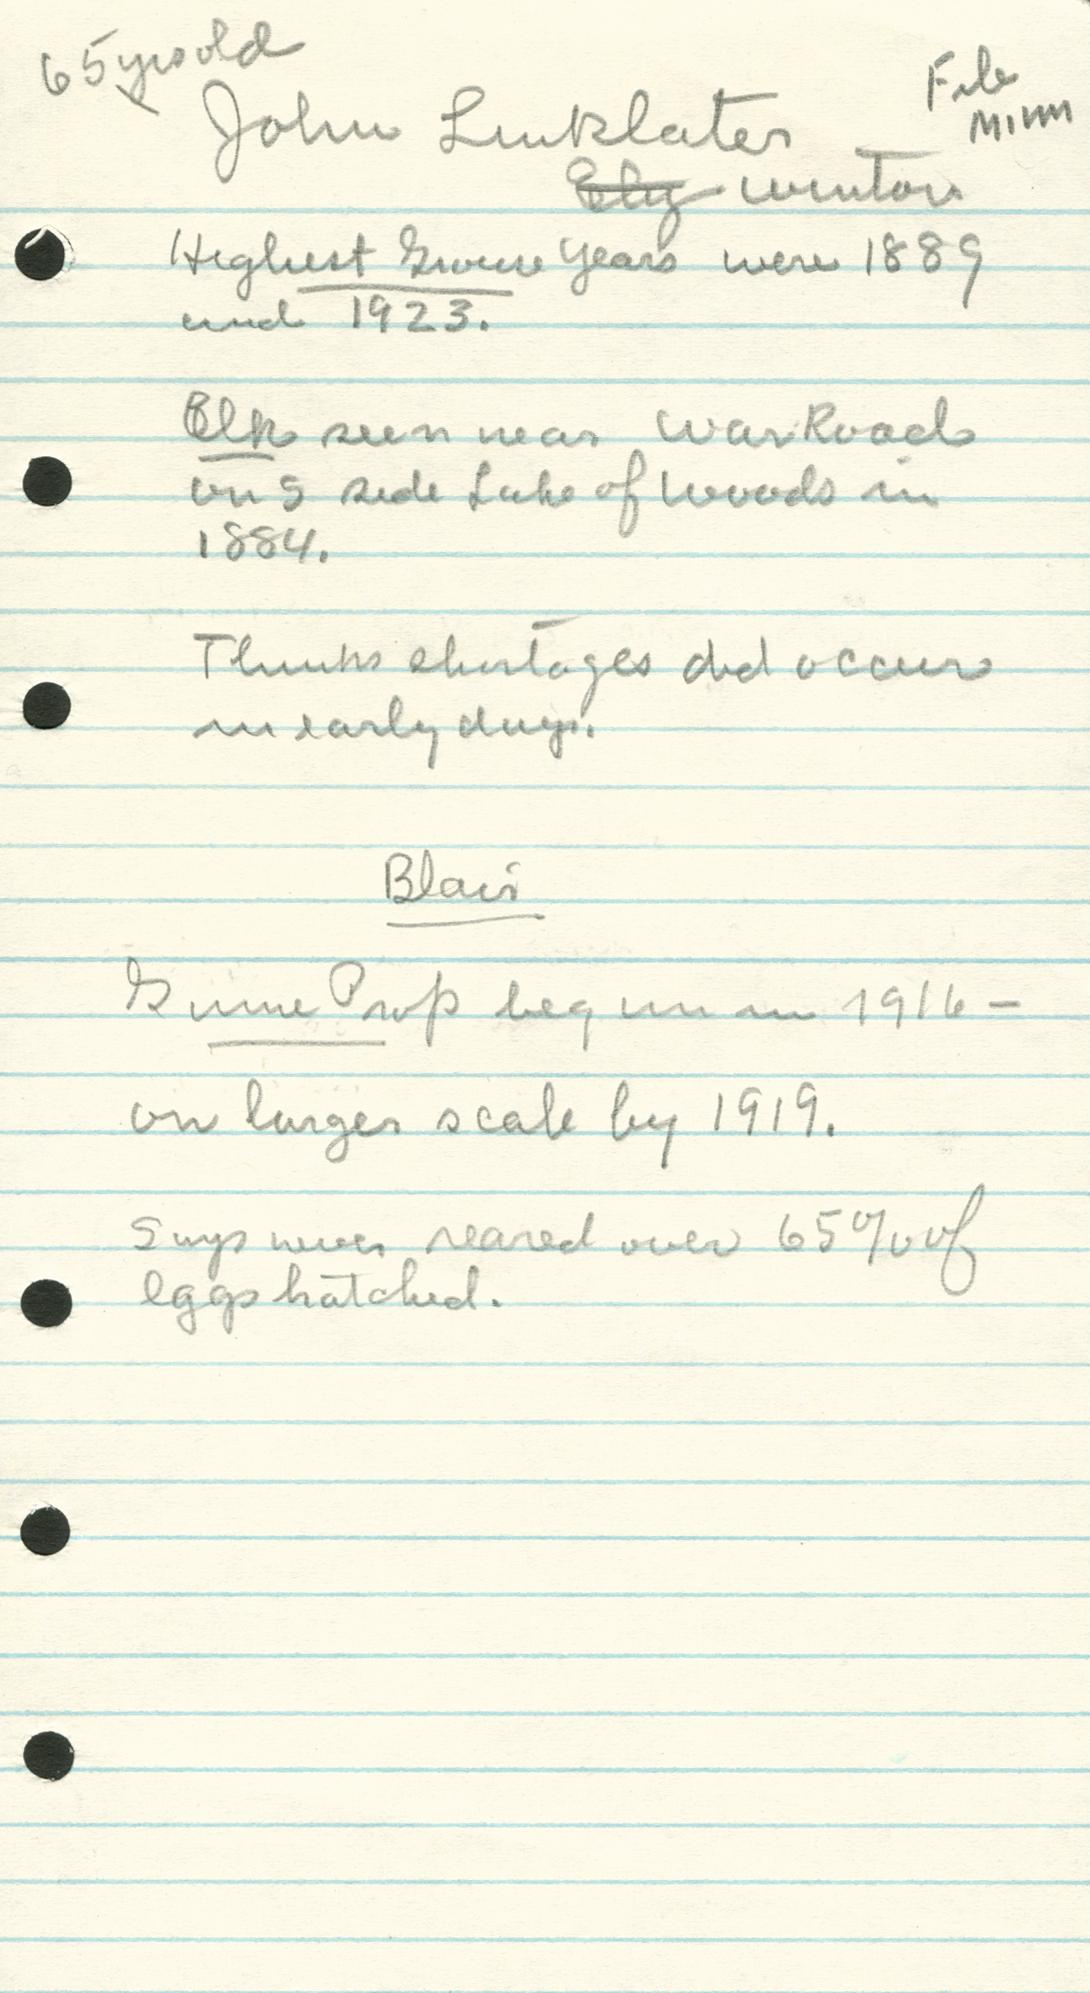 65 yrs old
File
Minn
John Linklater
Ely Winton
Highest Grouse Years were 1889
and 1923.
Elk seen near WarRoad
on S side Lake of Woods in
1884.
Thinks shortages did occur
in early days.
Blair
Game Prop begun in 1916 -
on larger scale by 1919.
Says never reared over 65% of
eggs hatched.